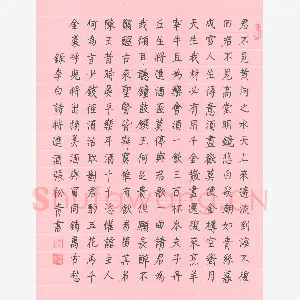 君不見黃河之水天上來奔流到海不復
回君不見高堂明鏡悲白髮朝如青絲暮
成雪人生得意須盡歡莫使金樽空對月
天生我材必有用千金散盡還復來烹羊
宰牛且為樂會須一飲三百杯岑夫子丹
丘生將進酒君莫停與君歌一曲請君為
我傾耳聽鐘鼓饌玉何足貴但願長醉不
願醒古來聖賢皆寂寞惟有飲者留其名
陳王昔時宴平樂斗酒十千恣歡謔主人
何為言少錢徑須沽取對君酌五花馬千
金裘呼兒將出換美酒與爾同銷萬古愁
錄李白詩將進酒 張松青書